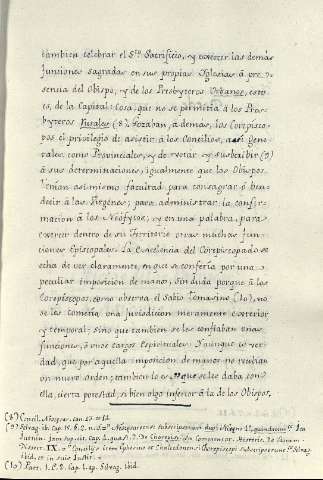 tambien celebrar el S.to Sacrificio, y exercer las demás
funciones sagradas en sus propias Iglesias á pre-
sencia del Obispo, y de los Presbyteros Urbanos, esto
es, de la Capital: cosa, que no se permitia á los Pres-
byteros Rurales (8). Gozaban, á demas, los Corepisco-
pos el privilegio de asistir á los Concilios, asi gene-
rales, como Provinciales, y de votar y subscribir (9)
á sus determinaciones, igualmente que los Obispos.
Tenian asimismo facultad para consagrar ó ben-
decir á las Virgenes; para administrar la confir-
macion á los Neófytos; y en una palabra, para
exercer dentro de su Territorio otras muchas fun-
ciones Episcopales. La Excelencia del Corepiscopado se
echa de ver claramente, en que se conferia por una
peculiar imposicion de manos, sin duda porque á los
Corepiscopos, como observa el Sabio Tomasino (10), no
se les cometia una jurisdiccion meramente exterior
y temporal; sino que tambien se les confiaban unas
funciones, ó unos cargos Espirituales. Y aunque es ver-
dad, que por aquella imposicion de manos no recibian
un nuevo orden; tambien lo es, que se les daba con
ella, cierta potestad, si bien algo inferior á la de los Obispos,
(8) Concil. Neocaes. can. 13. et 14.
(9) Selvag. ib. cap. 15. § 2. n.
Justin.
Nester. IX.
ibid. et in suis Instit.
(10) Part. 1. L. 2. cap. 1. ap. Selvag. ibid.